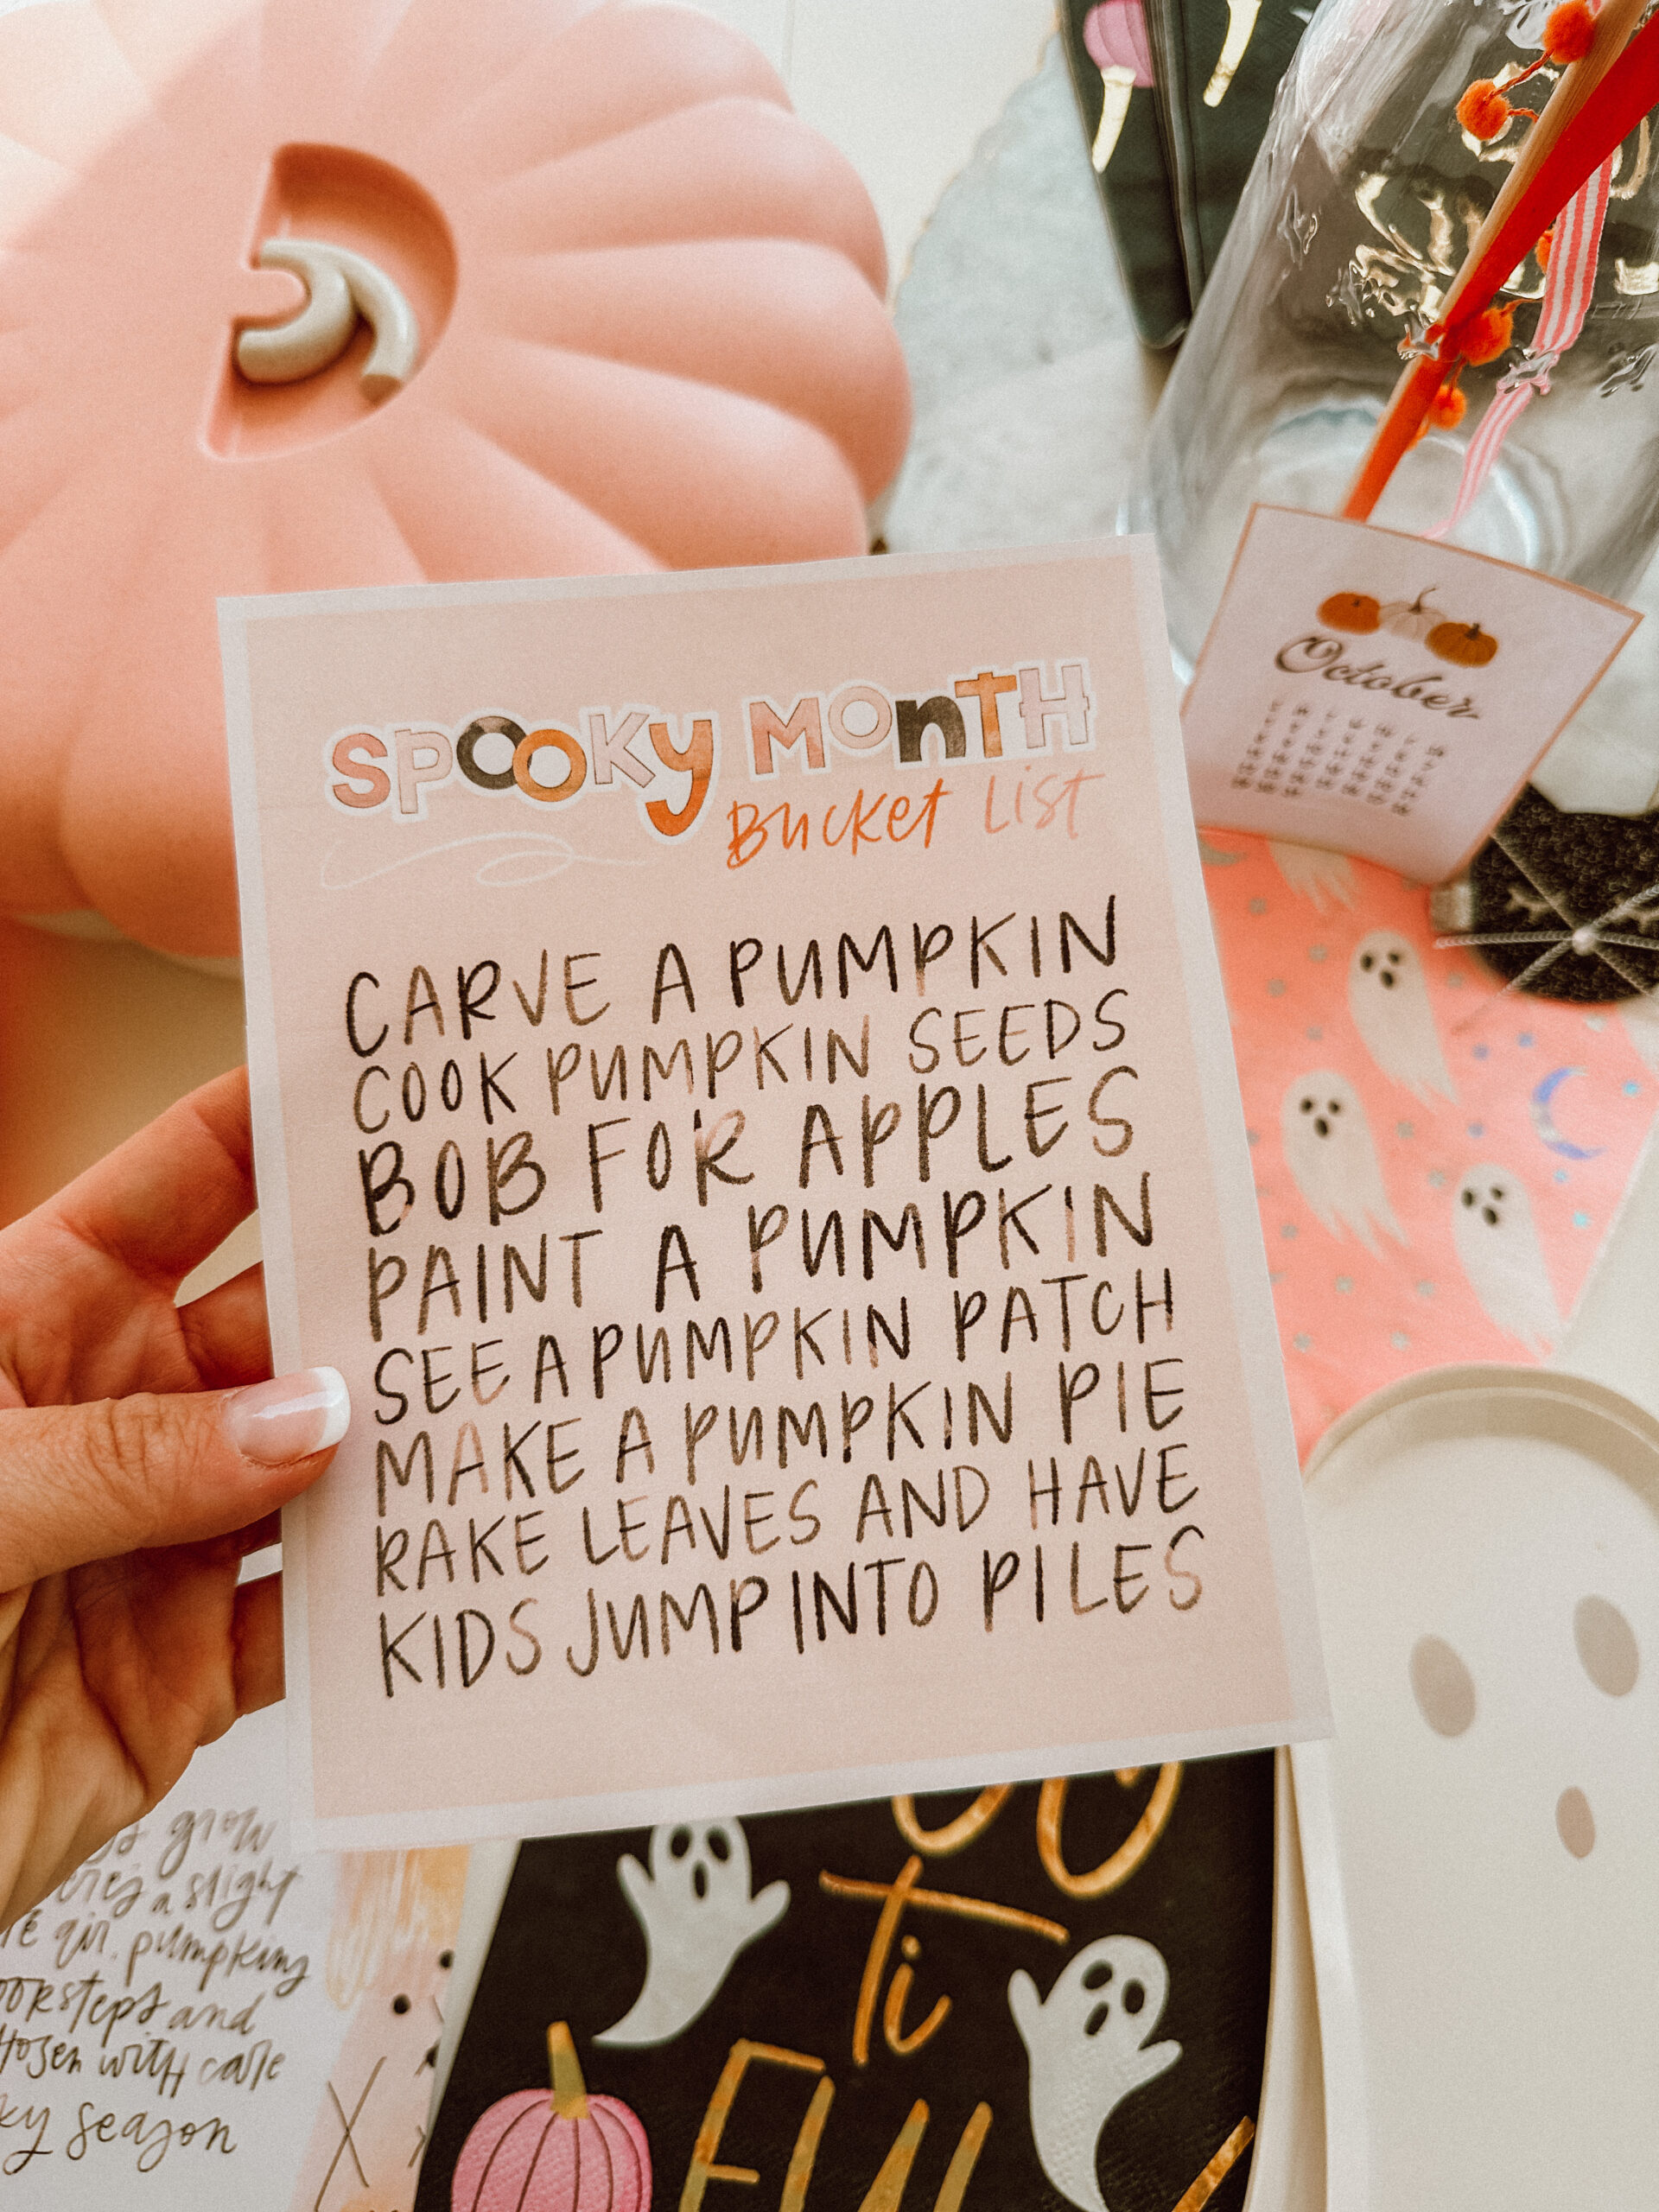 SPOOKY MONTH
BUCKET LIST
CARVE A PUMPKIN
COOK PUMPKIN SEEDS
BOB FOR APPLES
PAINT A PUMPKIN
SEE A PUMPKIN PATCH
MAKE A PUMPKIN PIE
RAKE LEAVES AND HAVE
KIDS JUMP INTO PILES
October
grow
a slight
air, pumpkins
and
with care
season